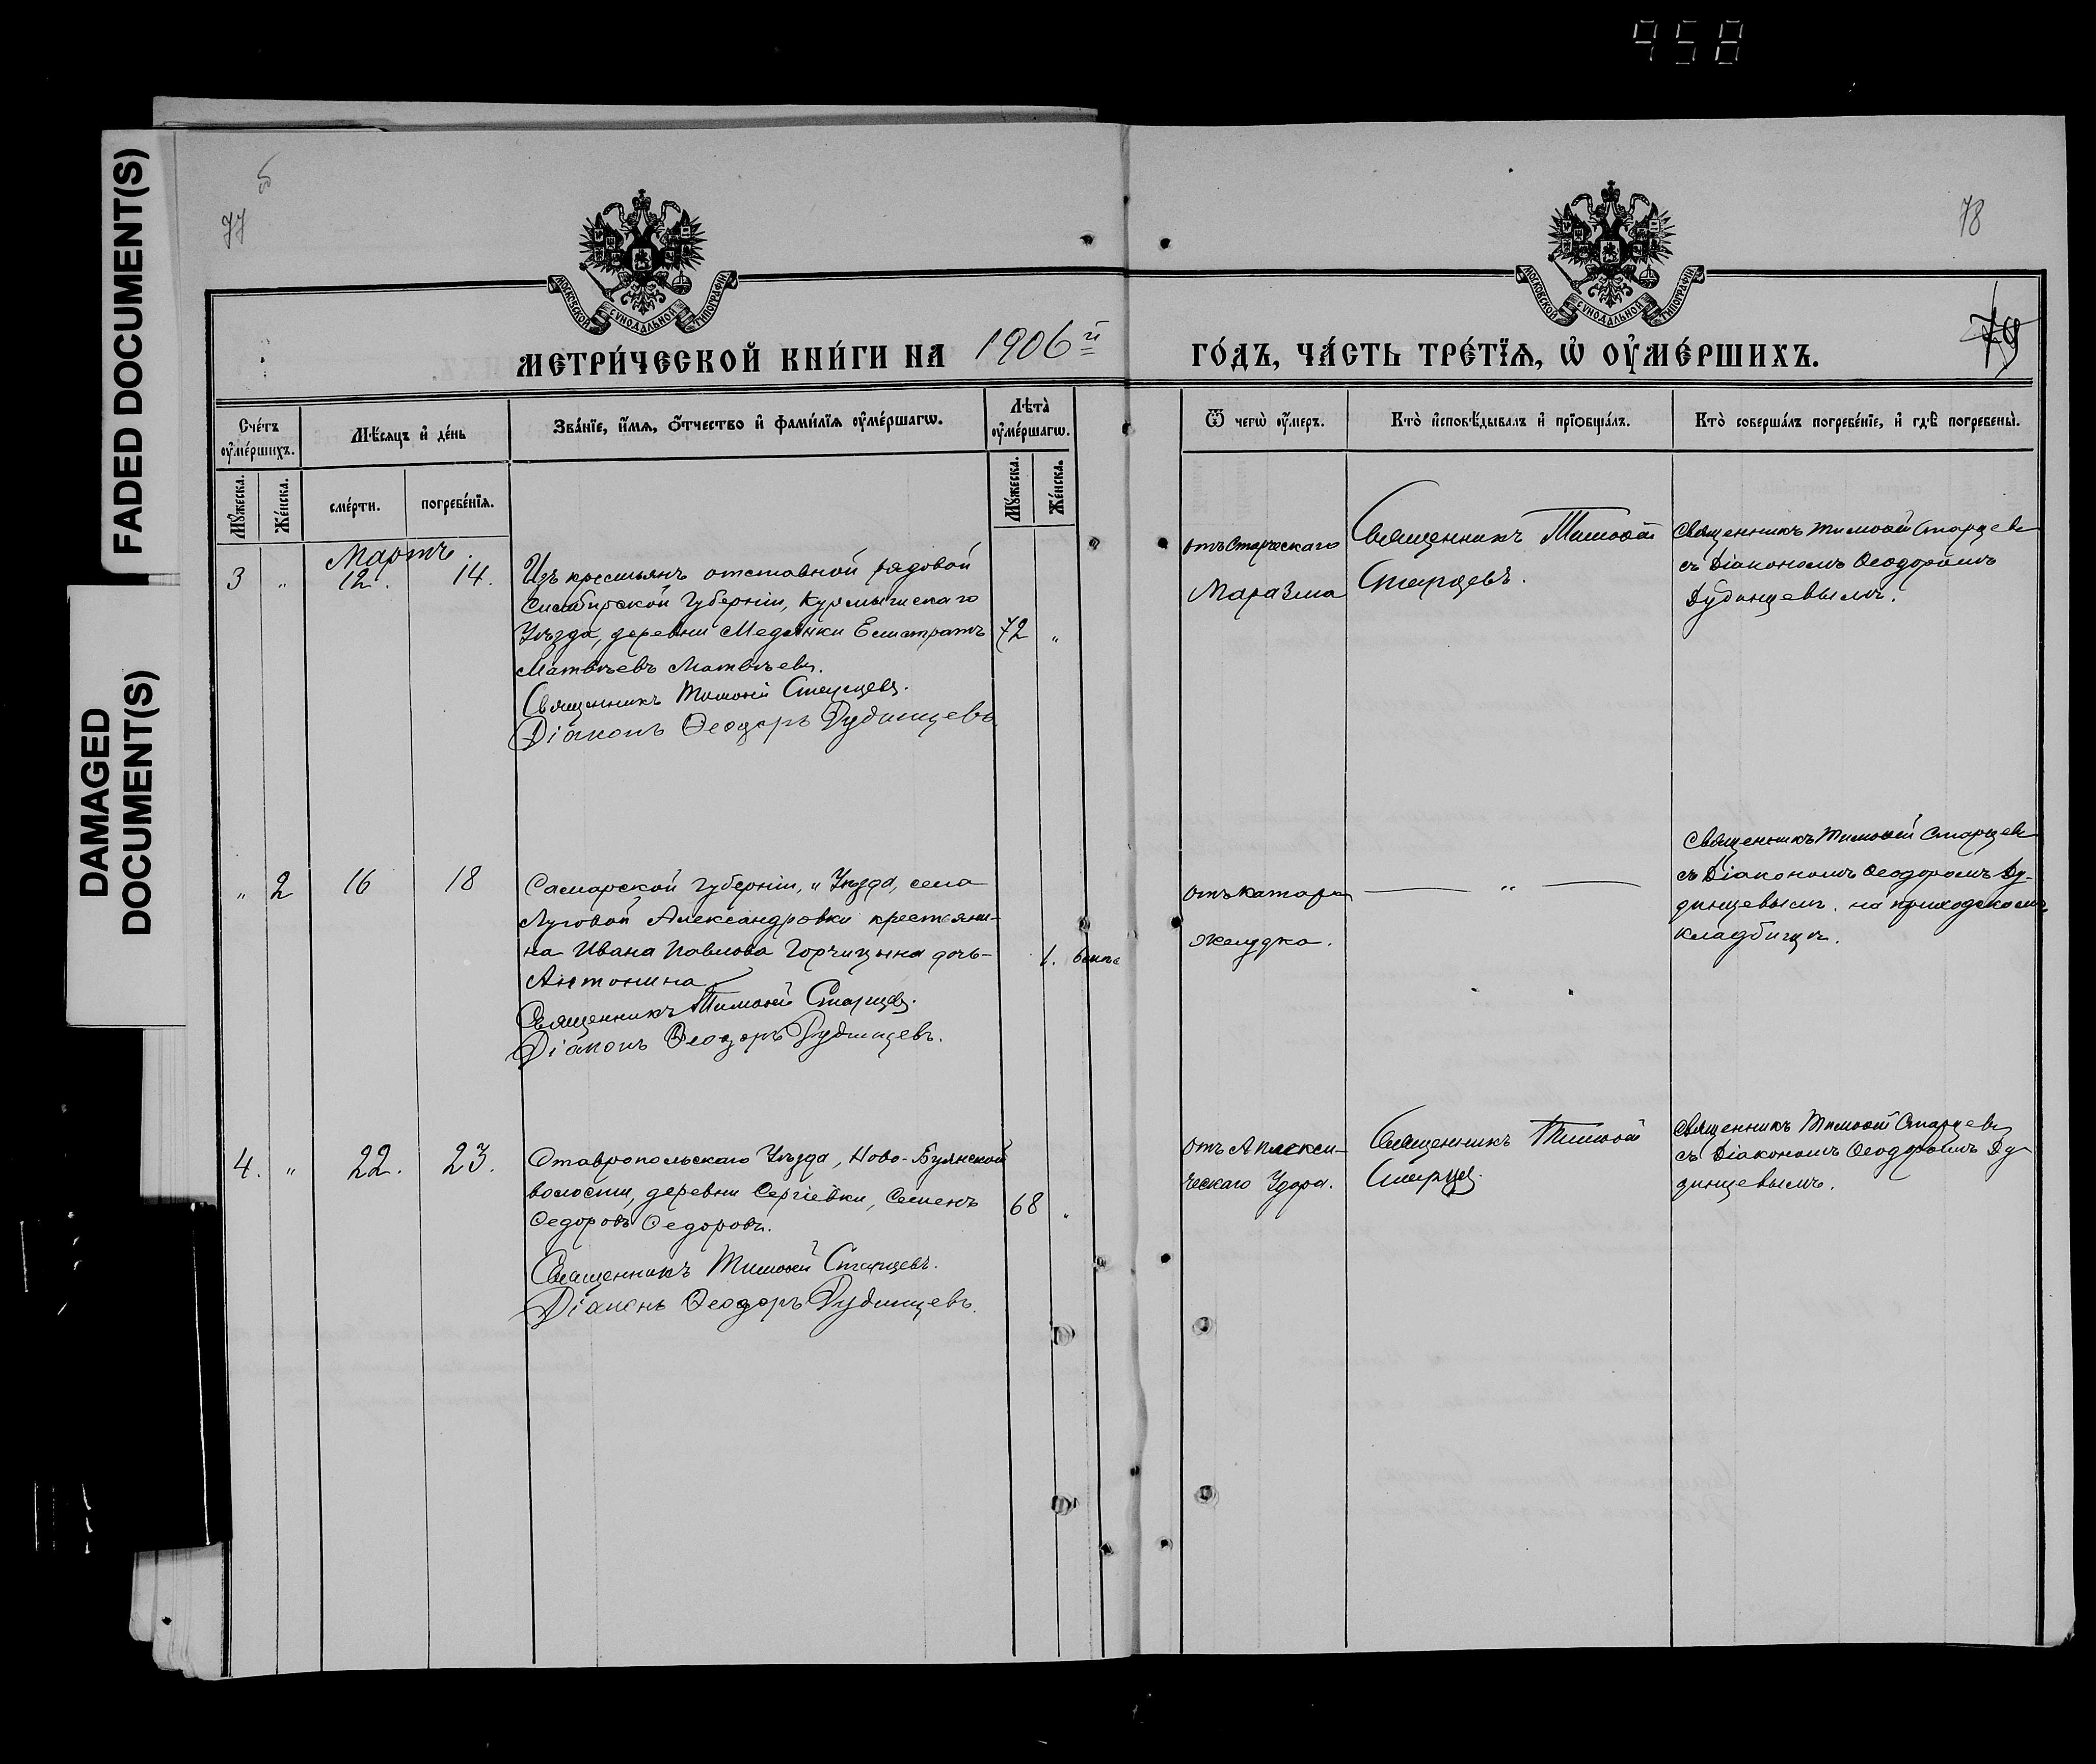 958
FADED DOCUMENT(S)
DAMAGED
DOCUMENT(S)
77
78
79
МОСКОВСКОЙ СѴНОДАЛЬНОЙ ТИПОГРАФІИ
МОСКОВСКОЙ СѴНОДАЛЬНОЙ ТИПОГРАФІИ
МЕТРИ́ЧЕСКОЙ КНИ́ГИ НА 1906й
ГО́ДЪ, ЧА́СТЬ ТРЕ́ТЇѦ, Ѡ҆ ОУ҆МЕ́РШИХЪ.
Сче́тъ оу҆ме́ршихъ.
Мѣ́сяцъ и҆ де́нь
Зва́нїе, и҆́мѧ, ѻ҆́тчество и҆ фами́лїѧ оу҆ме́ршагѡ.
Лѣта̀ оу҆ме́ршагѡ.
Ѿ чегѡ̀ оу҆́меръ.
Кто̀ и҆сповѣ́дывалъ и҆ прїѡбща́лъ.
Кто̀ соверша́лъ погребе́нїе, и҆ гдѣ̀ погребены̀.
Мꙋ́жеска.
Же́нска.
сме́рти.
погребе́нїя.
Мꙋ́жеска.
Же́нска.
Мартъ.
3 „ 12. 14.
Изъ крестьянъ отставной рядовой
Симбирской Губерніи, Курмышскаго
Уѣзда, деревни Медянки Евистратъ
Матвѣевъ Матвѣевъ.
72 „
Священникъ Тимоѳей Старцевъ.
Діаконъ Ѳеодоръ Дудинцевъ
отъ Старческаго
Маразма
Священникъ Тимоѳей
Старцевъ.
Священникъ Тимоѳей Старцевъ
съ Діакономъ Ѳеодоромъ
Дудинцевымъ.
„ 2 16 18
Самарской Губерніи, „ Уѣзда, села
Луговой Александровки крестьяни-
на Ивана Павлова Горчицына дочь-
Антонина
1.
Священникъ Тимоѳей Старцевъ.
Діаконъ Ѳеодоръ Дудинцевъ.
отъ катара
желудка.
— „ —
Священникъ Тимоѳей Старцевъ
съ Діакономъ Ѳеодоромъ Ду-
динцевымъ. на приходскомъ
кладбищѣ.
4. „ 22. 23.
Ставропольскаго Уѣзда, Ново-Буянской
волости, деревни Сергіевки, Семенъ
Ѳедоровъ Ѳедоровъ.
68 „
Священникъ Тимоѳей Старцевъ.
Діаконъ Ѳеодоръ Дудинцевъ.
отъ Апплекси-
ческаго Удара.
Священникъ Тимоѳей
Старцевъ.
Священникъ Тимоѳей Старцевъ
съ Діакономъ Ѳеодоромъ Ду-
динцевымъ.